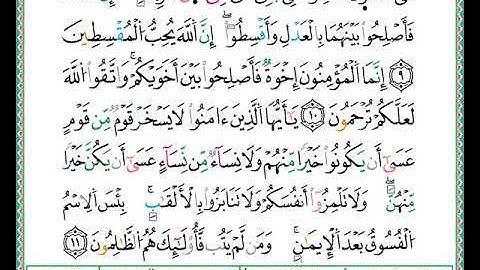 فَأَصْلِحُوا۟ بَيْنَهُمَا بِٱلْعَدْلِ وَأَقْسِطُوٓا۟ ۖ إِنَّ ٱللَّهَ يُحِبُّ ٱلْمُقْسِطِينَ
٩ إِنَّمَا ٱلْمُؤْمِنُونَ إِخْوَةٌ فَأَصْلِحُوا۟ بَيْنَ أَخَوَيْكُمْ ۚ وَٱتَّقُوا۟ ٱللَّهَ
لَعَلَّكُمْ تُرْحَمُونَ ١٠ يَٰٓأَيُّهَا ٱلَّذِينَ ءَامَنُوا۟ لَا يَسْخَرْ قَوْمٌ مِّن قَوْمٍ
عَسَىٰٓ أَن يَكُونُوا۟ خَيْرًا مِّنْهُمْ وَلَا نِسَآءٌ مِّن نِّسَآءٍ عَسَىٰٓ أَن يَكُنَّ خَيْرًا
مِّنْهُنَّ ۖ وَلَا تَلْمِزُوٓا۟ أَنفُسَكُمْ وَلَا تَنَابَزُوا۟ بِٱلْأَلْقَٰبِ ۖ بِئْسَ ٱلِٱسْمُ
ٱلْفُسُوقُ بَعْدَ ٱلْإِيمَٰنِ ۚ وَمَن لَّمْ يَتُبْ فَأُو۟لَٰٓئِكَ هُمُ ٱلظَّٰلِمُونَ ١١